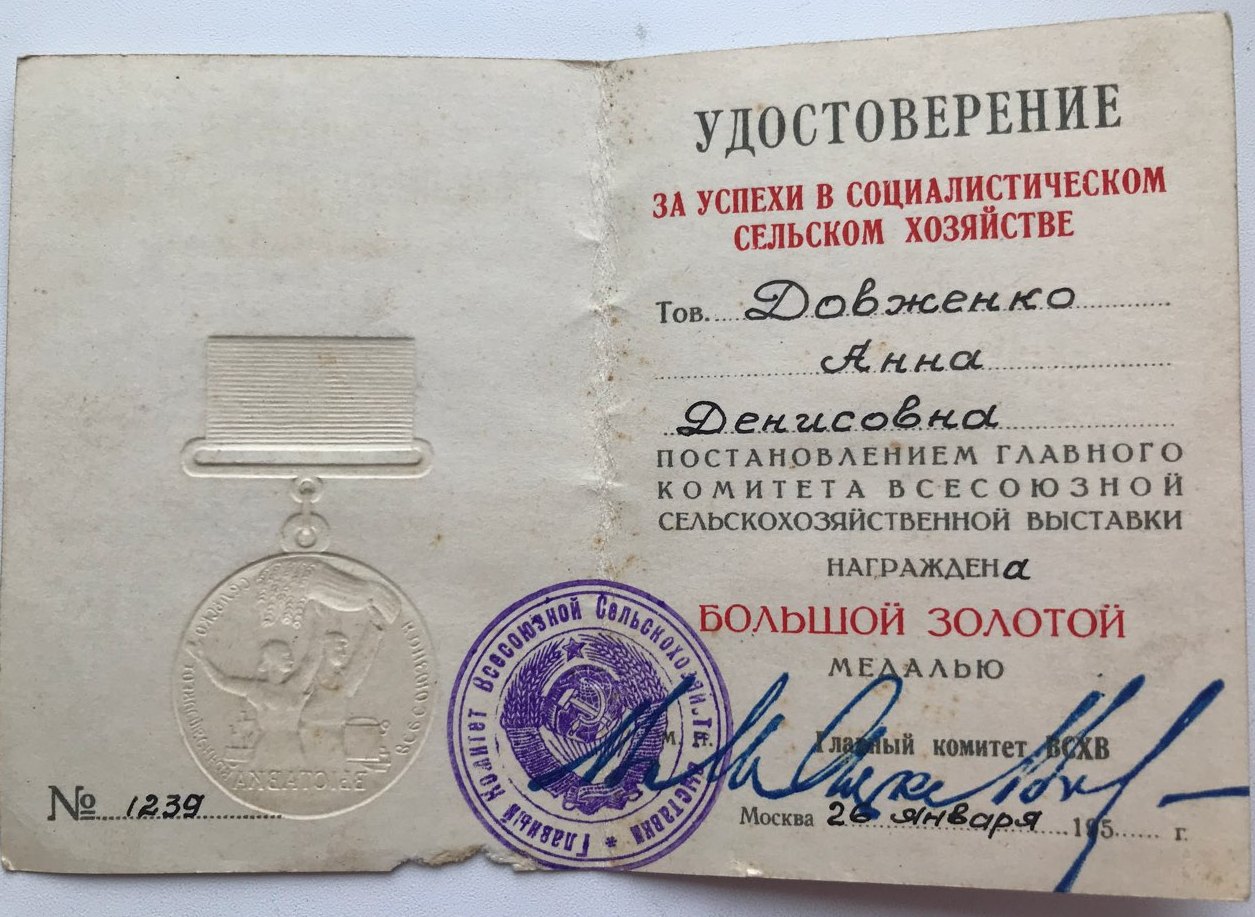 № 1239
УДОСТОВЕРЕНИЕ
ЗА УСПЕХИ В СОЦИАЛИСТИЧЕСКОМ
СЕЛЬСКОМ ХОЗЯЙСТВЕ
Тов. Довженко
Анна
Денисовна
ПОСТАНОВЛЕНИЕМ ГЛАВНОГО
КОМИТЕТА ВСЕСОЮЗНОЙ
СЕЛЬСКОХОЗЯЙСТВЕННОЙ ВЫСТАВКИ
НАГРАЖДЕНА
БОЛЬШОЙ ЗОЛОТОЙ
МЕДАЛЬЮ
М. П.
Главный комитет ВСХВ
Москва 26 января 195 г.
Главный Комитет Всесоюзной Сельскохозяйств. Выставки
ВСЕСОЮЗНАЯ СЕЛЬСКОХОЗЯЙСТВЕННАЯ
ВЫСТАВКА